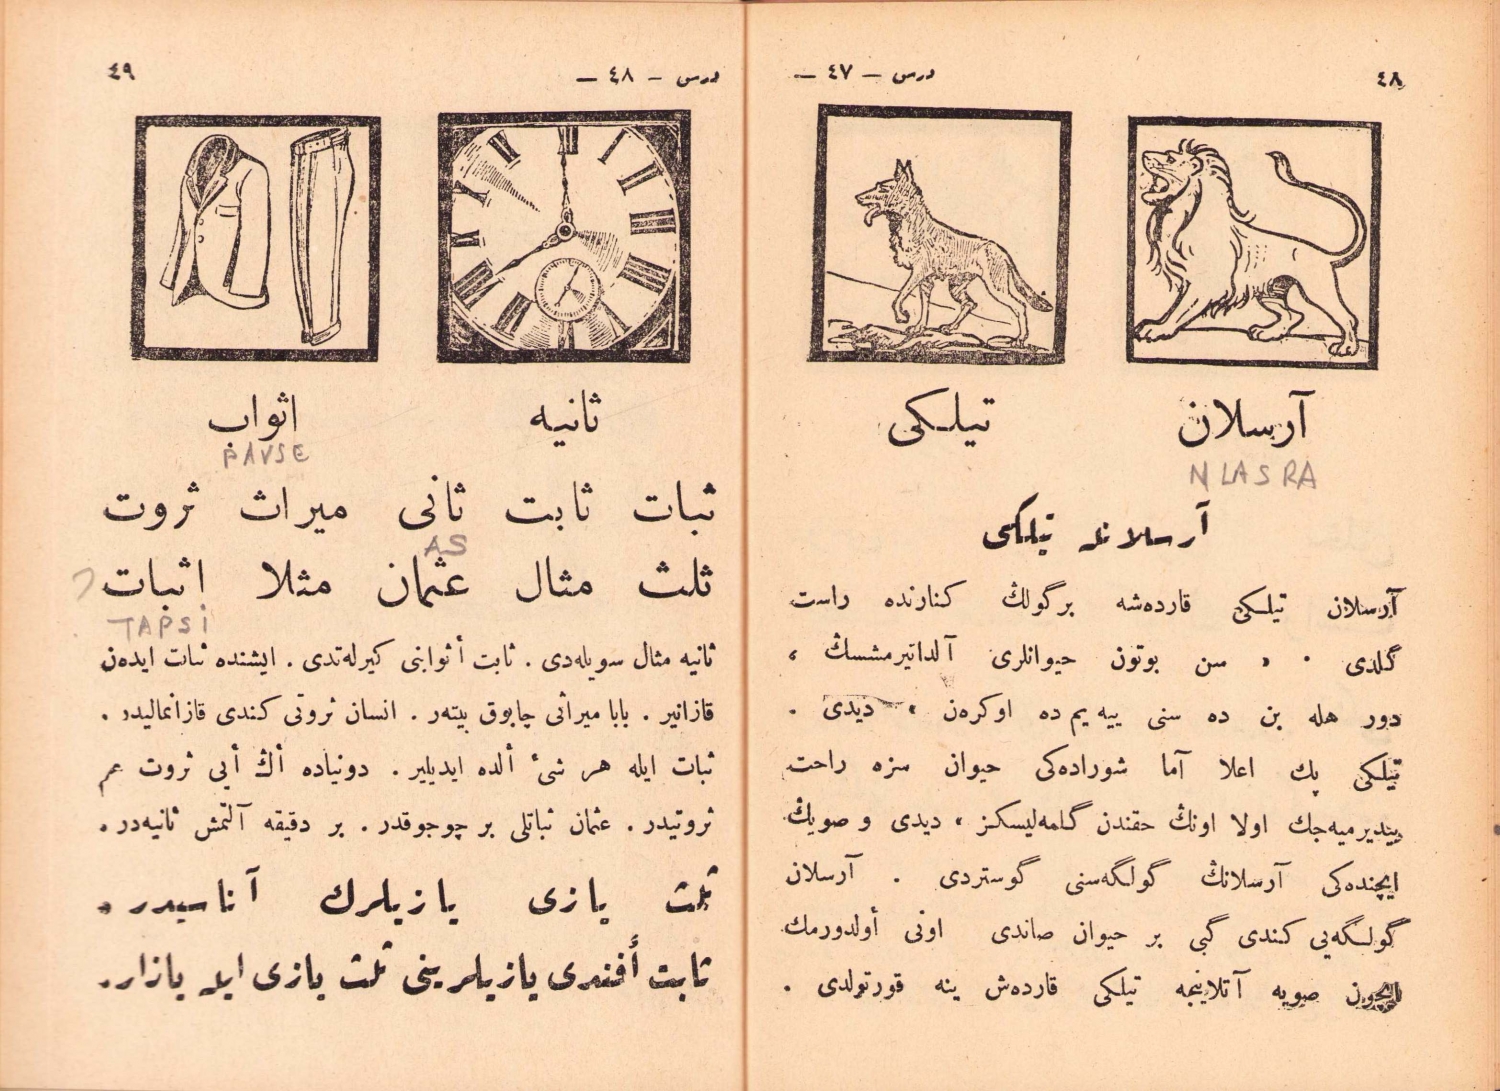 ٤٨
درس — ٤٧ —
آرسلان
تیلکی
N LAS RA
آرسلانله تیلکی
آرسلان تیلکی قارده‌شه بر گولڭ کنارنده راست
گلدی . « سن بوتون حیوانلری آلداتیرمشسڭ ،
دور هله بن ده سنی ییه‌یم ده اوگره‌ن » دیدی .
تیلکی پك اعلا آما شوراده‌کی حیوان سزه راحت
ییدیرمیه‌جك اولا اونڭ حقندن گلمه‌لیسکز » دیدی و صویڭ
ایچنده‌کی آرسلانڭ گولگه‌سنی گوستردی . آرسلان
گولگه‌یی کندی گبی بر حیوان صاندی اونی أولدورمك
ایچون صویه آتلاینجه تیلکی قارده‌ش ینه قورتولدی .
درس — ٤٨ —
٤٩
ثانیه
اثواب
PAVSE
ثبات ثابت ثانی میراث ثروت
AS
ثلث مثال عثمان مثلا اثبات
TAPSİ
ثانیه مثال سویله‌دی . ثابت أثوابنی کیرله‌تدی . ایشنده ثبات ایده‌ن
قازانیر . بابا میراثی چابوق بیته‌ر . انسان ثروتی کندی قازانمالیدر .
ثبات ایله هر شیٔ ألده ایدیلیر . دونیاده أڭ أیی ثروت علم
ثروتیدر . عثمان ثباتلی بر چوجوقدر . بر دقیقه آلتمش ثانیه‌در .
ثلث یازی یازیلرك آناسیدر .
ثابت أفندی یازیلرینی ثلث یازی ایله یازار .